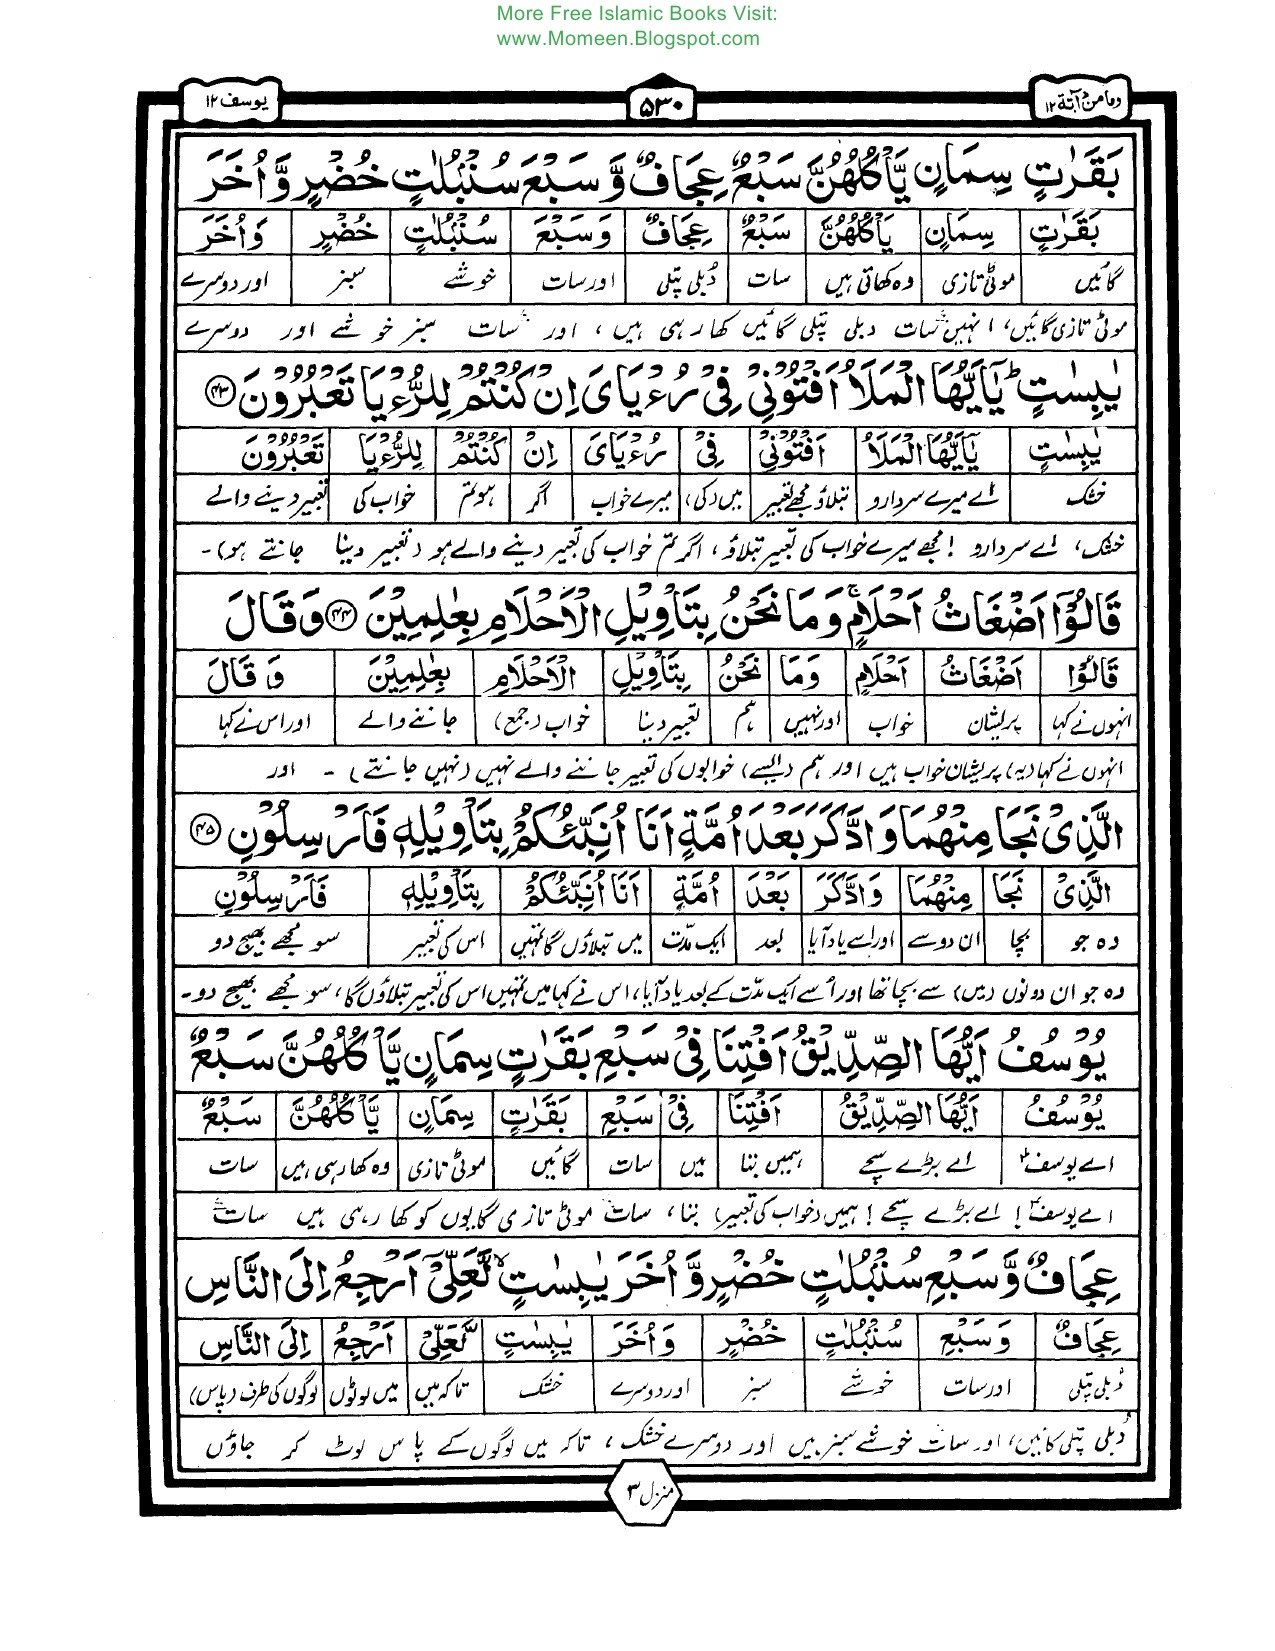 More Free Islamic Books Visit:
www.Momeen.Blogspot.com
وما من دآبة ۱۲ ۵۳۰ یوسف ۱۲
بَقَرٰتٍ سِمَانٍ يَّاْكُلُهُنَّ سَبْعٌ عِجَافٌ وَّ سَبْعَ سُنْۢبُلٰتٍ خُضْرٍ وَّ اُخَرَ
بَقَرٰتٍ سِمَانٍ يَاْكُلُهُنَّ سَبْعٌ عِجَافٌ وَ سَبْعَ سُنْۢبُلٰتٍ خُضْرٍ وَ اُخَرَ
گائیں موٹی تازی وہ کھاتی ہیں سات دُبلی پتلی اور سات خوشے سبز اور دوسرے
موٹی تازی گائیں، انہیں سات دبلی پتلی گائیں کھا رہی ہیں، اور سات سبز خوشے اور دوسرے
يٰبِسٰتٍ ؕ يٰۤاَيُّهَا الْمَلَاُ اَفْتُوْنِيْ فِيْ رُءْيَايَ اِنْ كُنْتُمْ لِلرُّءْيَا تَعْبُرُوْنَ ۴۳
يٰبِسٰتٍ يٰۤاَيُّهَا الْمَلَاُ اَفْتُوْنِيْ فِيْ رُءْيَايَ اِنْ كُنْتُمْ لِلرُّءْيَا تَعْبُرُوْنَ
خشک اے میرے سردارو بتلاؤ مجھے تعبیر میں (کی) میرے خواب اگر ہو تم خواب کی تعبیر دینے والے
خشک، اے سردارو! مجھے میرے خواب کی تعبیر بتلاؤ، اگر تم خواب کی تعبیر دینے والے ہو (تعبیر دینا جانتے ہو)۔
قَالُوْۤا اَضْغَاثُ اَحْلَامٍ ۚ وَ مَا نَحْنُ بِتَاْوِيْلِ الْاَحْلَامِ بِعٰلِمِيْنَ ۴۴ وَ قَالَ
قَالُوْۤا اَضْغَاثُ اَحْلَامٍ وَمَا نَحْنُ بِتَاْوِيْلِ الْاَحْلَامِ بِعٰلِمِيْنَ وَ قَالَ
انہوں نے کہا پریشان خواب اور نہیں ہم تعبیر دینا خواب (جمع) جاننے والے اور اس نے کہا
انہوں نے کہا (یہ) پریشان خواب ہیں اور ہم (ایسے) خوابوں کی تعبیر جاننے والے نہیں (نہیں جانتے)۔ اور
الَّذِيْ نَجَا مِنْهُمَا وَ ادَّكَرَ بَعْدَ اُمَّةٍ اَنَا اُنَبِّئُكُمْ بِتَاْوِيْلِهٖ فَاَرْسِلُوْنِ ۴۵
الَّذِيْ نَجَا مِنْهُمَا وَ ادَّكَرَ بَعْدَ اُمَّةٍ اَنَا اُنَبِّئُكُمْ بِتَاْوِيْلِهٖ فَاَرْسِلُوْنِ
وہ جو بچا ان دو سے اور اسے یاد آیا بعد ایک مدّت میں بتلاؤں گا تمہیں اس کی تعبیر سو مجھے بھیج دو
وہ جو ان دونوں (میں) سے بچا تھا اور اُسے ایک مدّت کے بعد یاد آیا، اس نے کہا میں تمہیں اس کی تعبیر بتلاؤں گا، سو مجھے بھیج دو۔
يُوْسُفُ اَيُّهَا الصِّدِّيْقُ اَفْتِنَا فِيْ سَبْعِ بَقَرٰتٍ سِمَانٍ يَّاْكُلُهُنَّ سَبْعٌ
يُوْسُفُ اَيُّهَا الصِّدِّيْقُ اَفْتِنَا فِيْ سَبْعِ بَقَرٰتٍ سِمَانٍ يَّاْكُلُهُنَّ سَبْعٌ
اے یوسفؑ اے بڑے سچے ہمیں بتا میں سات گائیں موٹی تازی وہ کھا رہی ہیں سات
اے یوسفؑ! اے بڑے سچے! ہمیں (خواب کی تعبیر) بتا، سات موٹی تازی گایوں کو کھا رہی ہیں سات
عِجَافٌ وَّ سَبْعِ سُنْۢبُلٰتٍ خُضْرٍ وَّ اُخَرَ يٰبِسٰتٍ ۙ لَّعَلِّيْۤ اَرْجِعُ اِلَى النَّاسِ
عِجَافٌ وَ سَبْعِ سُنْۢبُلٰتٍ خُضْرٍ وَ اُخَرَ يٰبِسٰتٍ لَّعَلِّيْۤ اَرْجِعُ اِلَى النَّاسِ
دُبلی پتلی اور سات خوشے سبز اور دوسرے خشک تاکہ میں میں لوٹوں لوگوں کی طرف (پاس)
دُبلی پتلی گائیں، اور سات خوشے سبز ہیں اور دوسرے خشک، تاکہ میں لوگوں کے پاس لوٹ کر جاؤں
منزل ۳